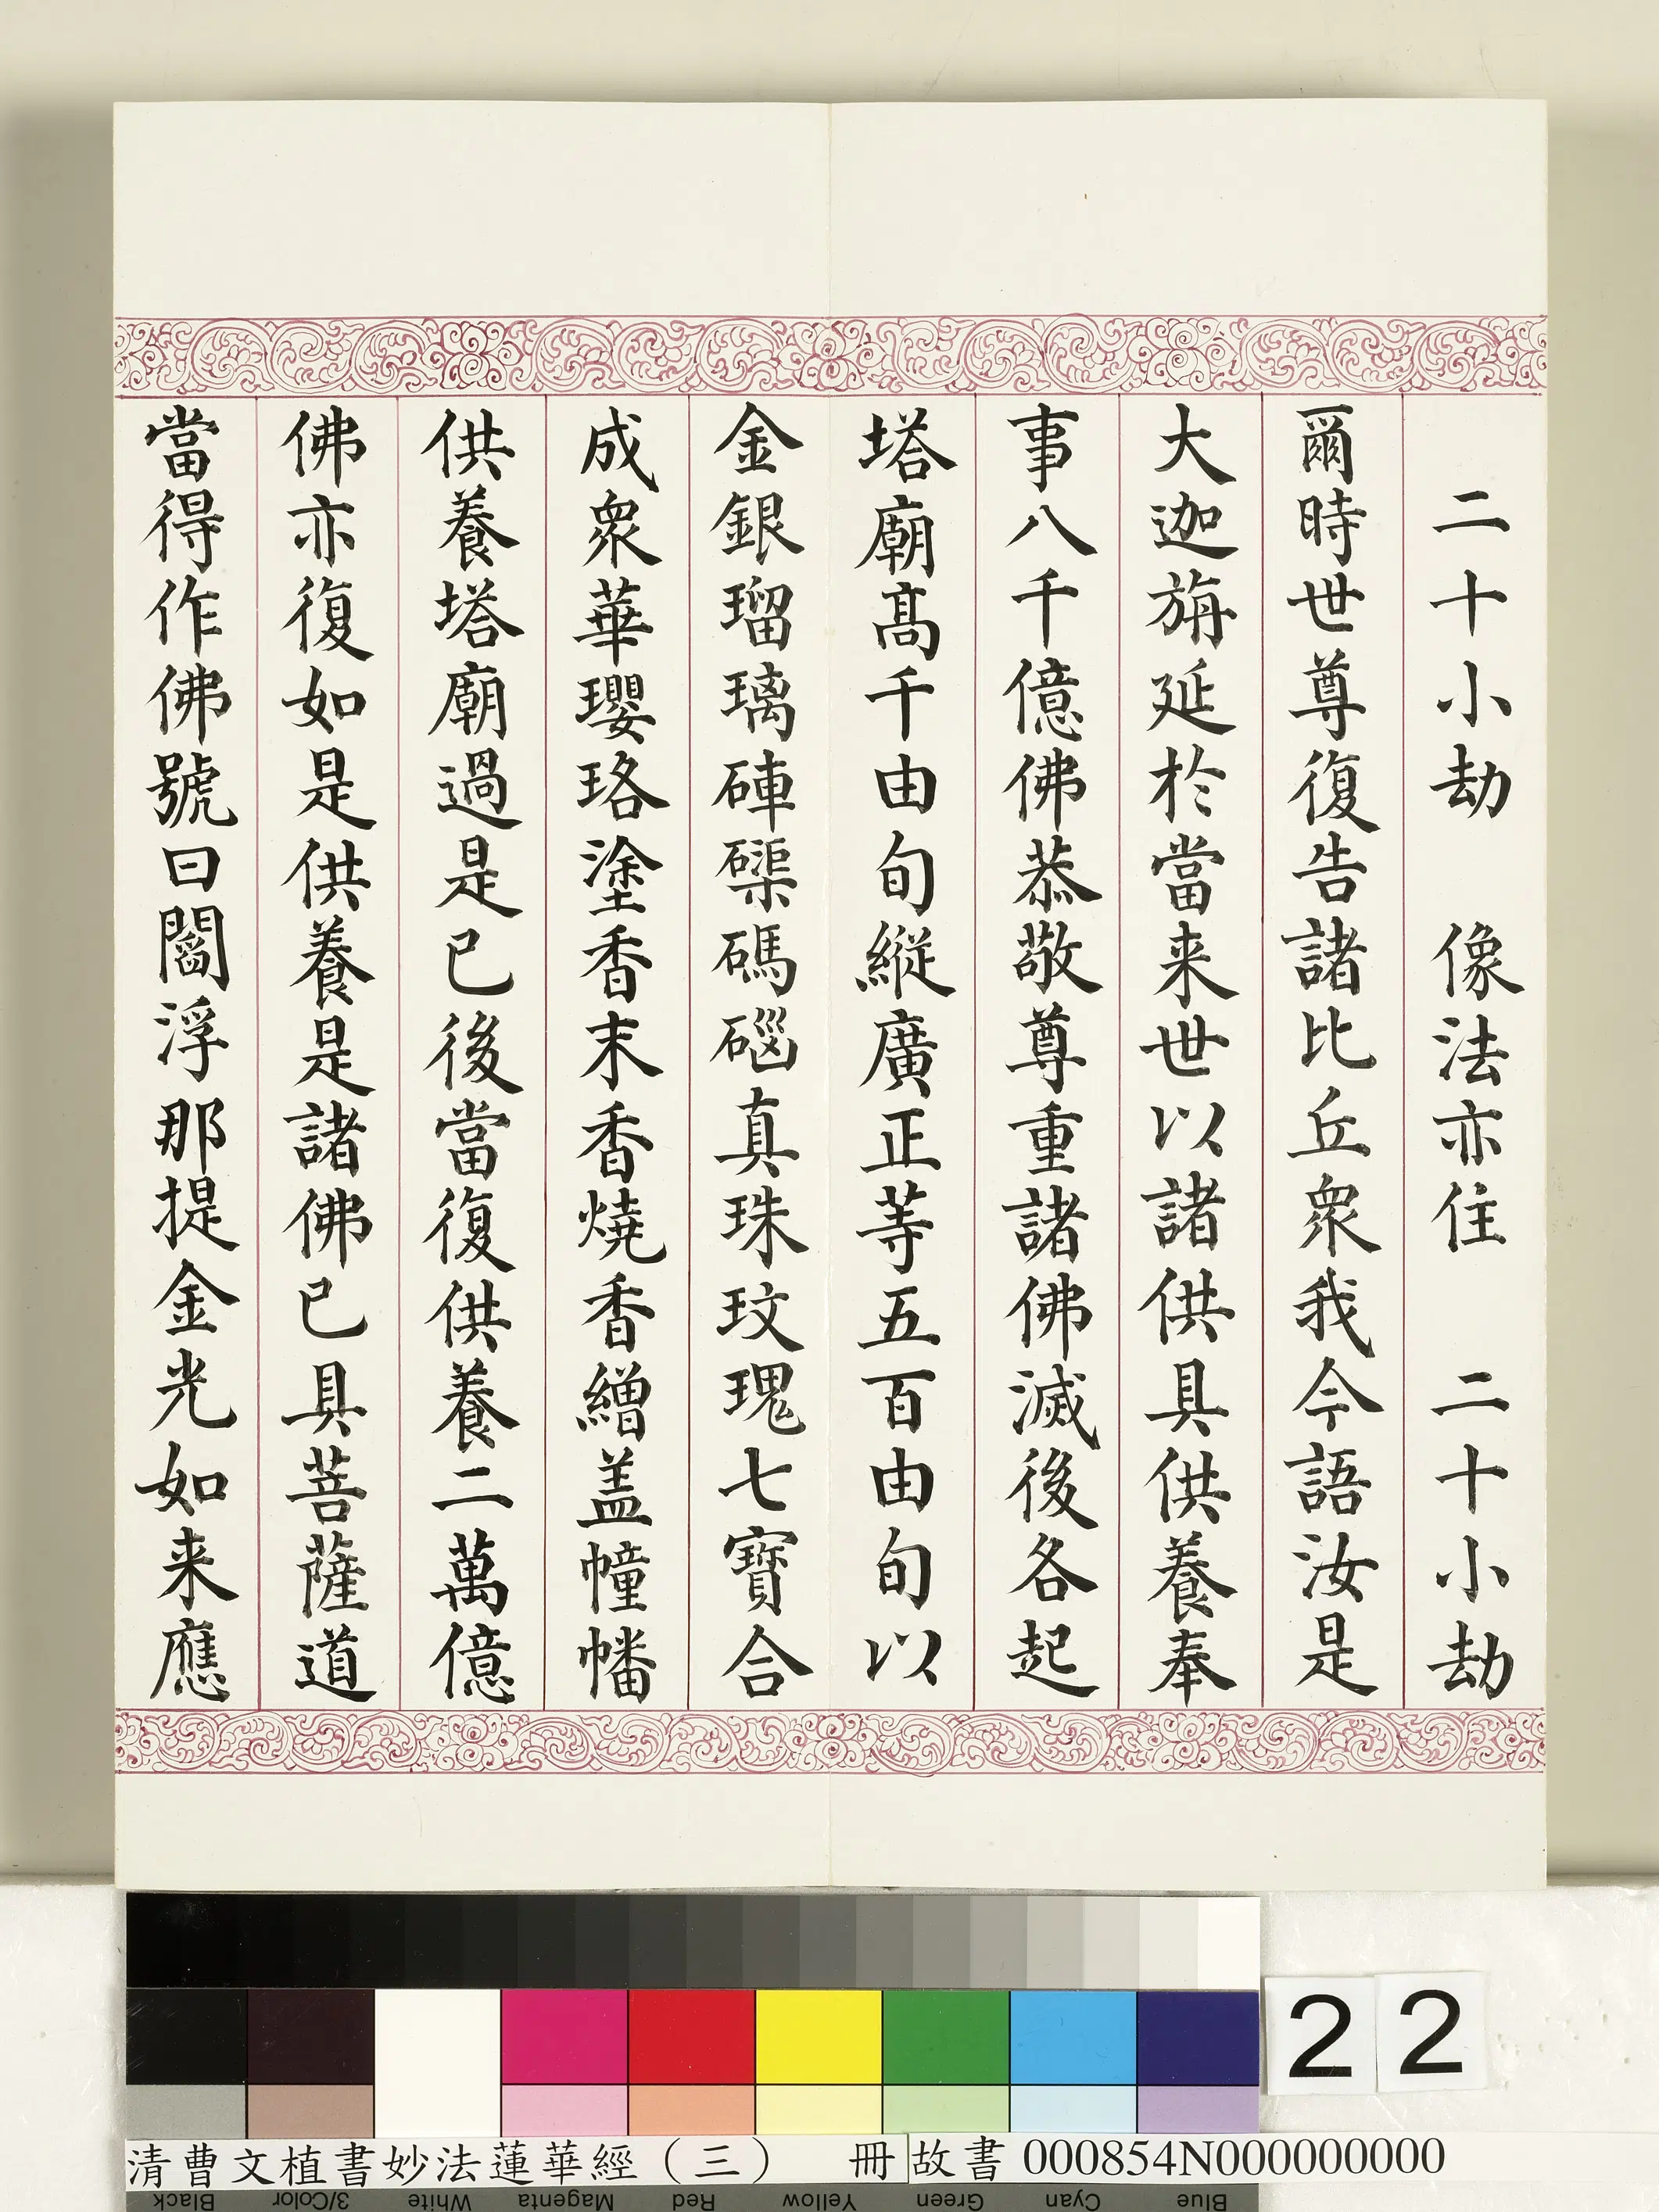 二十小劫　像法亦住　二十小劫
爾時世尊復告諸比丘衆我今語汝是
大迦旃延於當来世以諸供具供養奉
事八千億佛恭敬尊重諸佛滅後各起
塔廟髙千由旬縱廣正等五百由旬以
金銀瑠璃硨磲碼碯真珠玟瑰七寶合
成衆華瓔珞塗香末香燒香繒盖幢幡
供養塔廟過是已後當復供養二萬億
佛亦復如是供養是諸佛已具菩薩道
當得作佛號曰閻浮那提金光如来應
22
清曹文植書妙法蓮華經（三）　冊　故書 000854N000000000
Black 3/Color White Magenta Red Yellow Green Cyan Blue